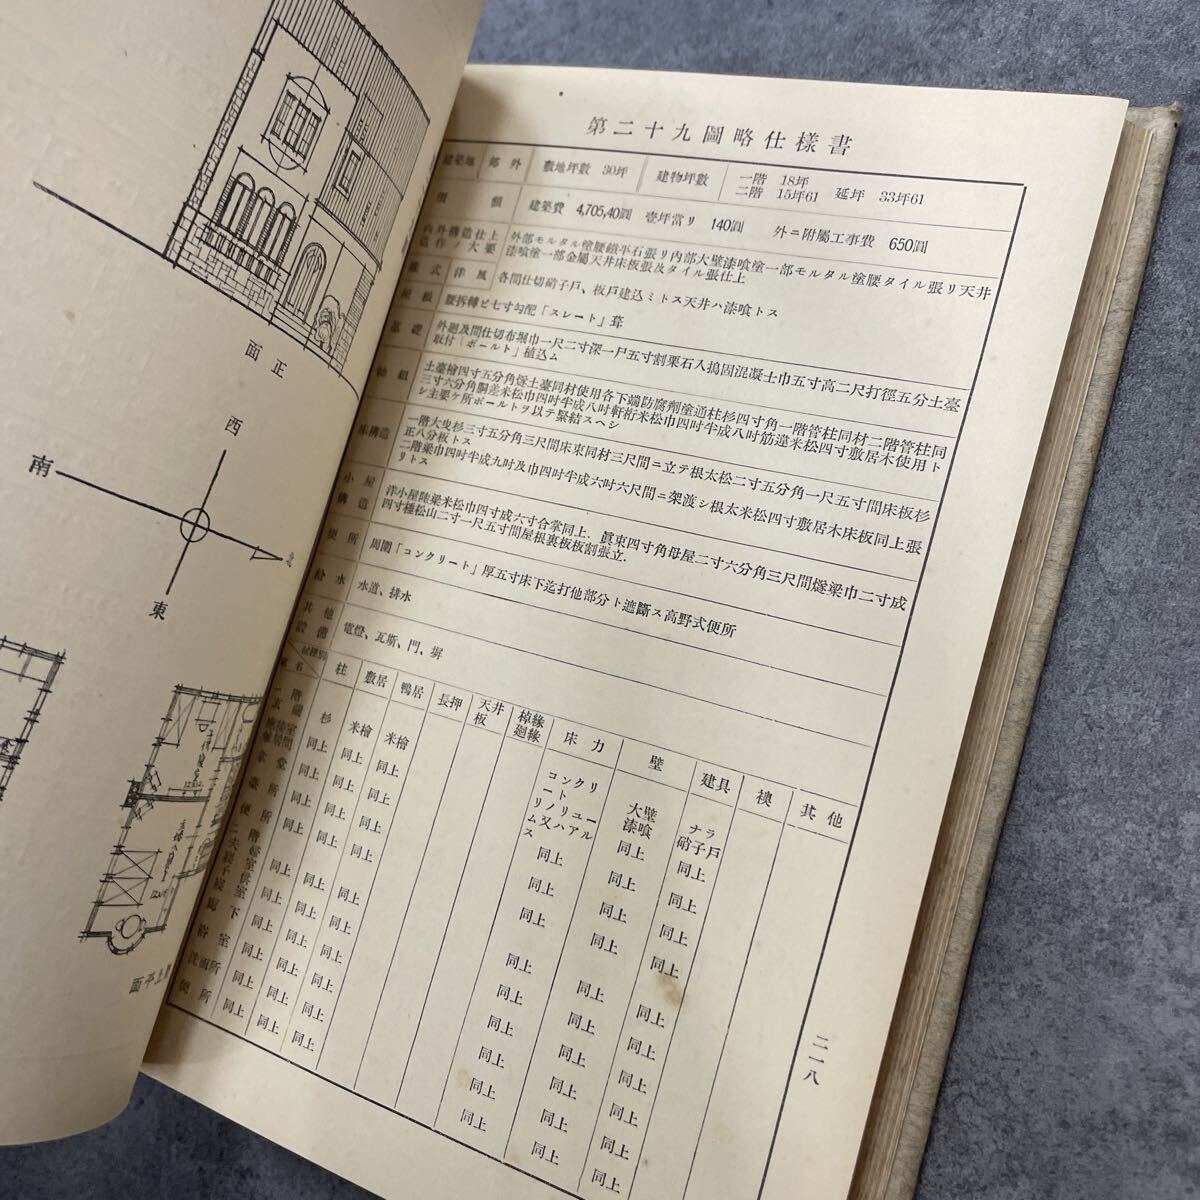 面正
西
南
北
東
面平上階
第二十九圖略仕様書
建築地 郊外 敷地坪數 30坪 建物坪數 一階 18坪 延坪 33坪61
二階 15坪61
價額 建築費 4,705,40圓 壱坪當リ 140圓 外ニ附屬工事費 650圓
内外構造仕上造作ノ大要 外部モルタル塗腰鐵平石張リ内部大壁漆喰塗一部モルタル塗腰タイル張リ天井
漆喰塗一部金屬天井床板張及タイル張仕上
様式 洋風 各間仕切硝子戸、板戸建込ミトス天井ハ漆喰トス
屋根 腰折轉ビ七寸勾配「スレート」葺
基礎 外廻及間仕切布堀巾一尺二寸深一尺五寸割栗石入搗固混凝土巾五寸高二尺打徑五分土臺
取付「ボールト」植込ム
軸組 土臺檜四寸五分角燧土臺同材使用各下端防腐劑塗通柱杉四寸角一階管柱同材二階管柱同
三寸六分角胴差米松巾四吋半成八吋軒桁米松巾四吋半成八吋筋違米松四寸敷居木使用ト
シ主要ケ所ボールトヲ以テ緊結スヘシ
床構造 一階大曳杉三寸五分角三尺間床束同材三尺間ニ立テ根太松二寸五分角一尺五寸間床板杉
正八分板トス
二階梁巾四吋半成九吋及巾四吋半成六吋六尺間ニ架渡シ根太米松四寸敷居木床板同上張
リトス
小屋構造 洋小屋陸梁米松巾四寸成六寸合掌同上、眞束四寸角母屋二寸六分角三尺間燧梁巾二寸成
四寸棰松山二寸一尺五寸間屋根裏板板割張立.
便所 周圍「コンクリート」厚五寸床下迄打他部分ト遮斷ス高野式便所
給水 水道、排水
其他設備 電燈、瓦斯、門、塀
室名 柱 敷居 鴨居 長押 天井板 棹緣廻緣 床力 壁 建具 襖 其他
一階
玄關 杉 米檜 米檜 コンクリート 大壁漆喰 ナラ硝子戸
同上 同上 同上 リノリユーム又ハアルス 同上 同上
食堂 同上 同上 同上 同上 同上 同上
臺所 同上 同上 同上 同上 同上 同上
便所 同上 同上 同上 同上 同上 同上
二階
同上 同上 同上 同上 同上 同上
同上 同上 同上 同上 同上 同上
廊下 同上 同上 同上 同上 同上 同上
浴室 同上 同上 同上 同上 同上 同上
洗面所 同上 同上 同上 同上 同上 同上
便所 同上 同上 同上 同上 同上 同上
二一八